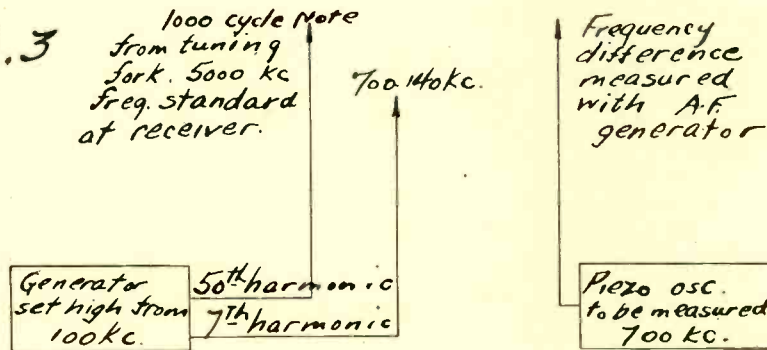 .3
1000 cycle Note
from tuning
fork. 5000 kc
freq. standard
at receiver.
700.140 kc.
Frequency
difference
measured
with A.F.
generator
Generator
set high from
100 kc.
50th harmonic
7th harmonic
Piezo osc.
to be measured
700 kc.